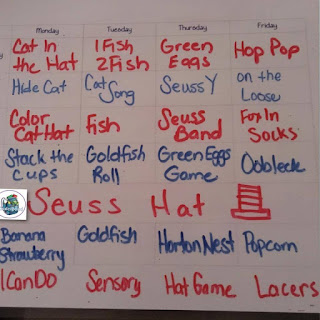 Monday Tuesday Thursday Friday
Cat In the Hat 1 Fish 2 Fish Green Eggs Hop Pop
Hide Cat Cat Song Seuss Y on the Loose
Color Cat Hat Fish Seuss Band Fox In Socks
Stack the Cups Goldfish Roll Green Eggs Game Oobleck
Seuss Hat
Banana Strawberry Goldfish Horton Nest Popcorn
I Can Do Sensory Hat Game Lacers